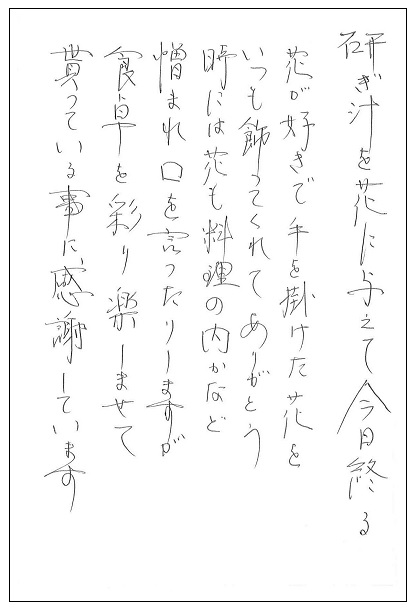 研ぎ汁を花に与えて今日終る
花が好きで手を掛けた花を
いつも飾ってくれてありがとう
時には花も料理の内かなど
憎まれ口を言ったりしますが
食卓を彩り楽しませて
貰っている事に、感謝しています